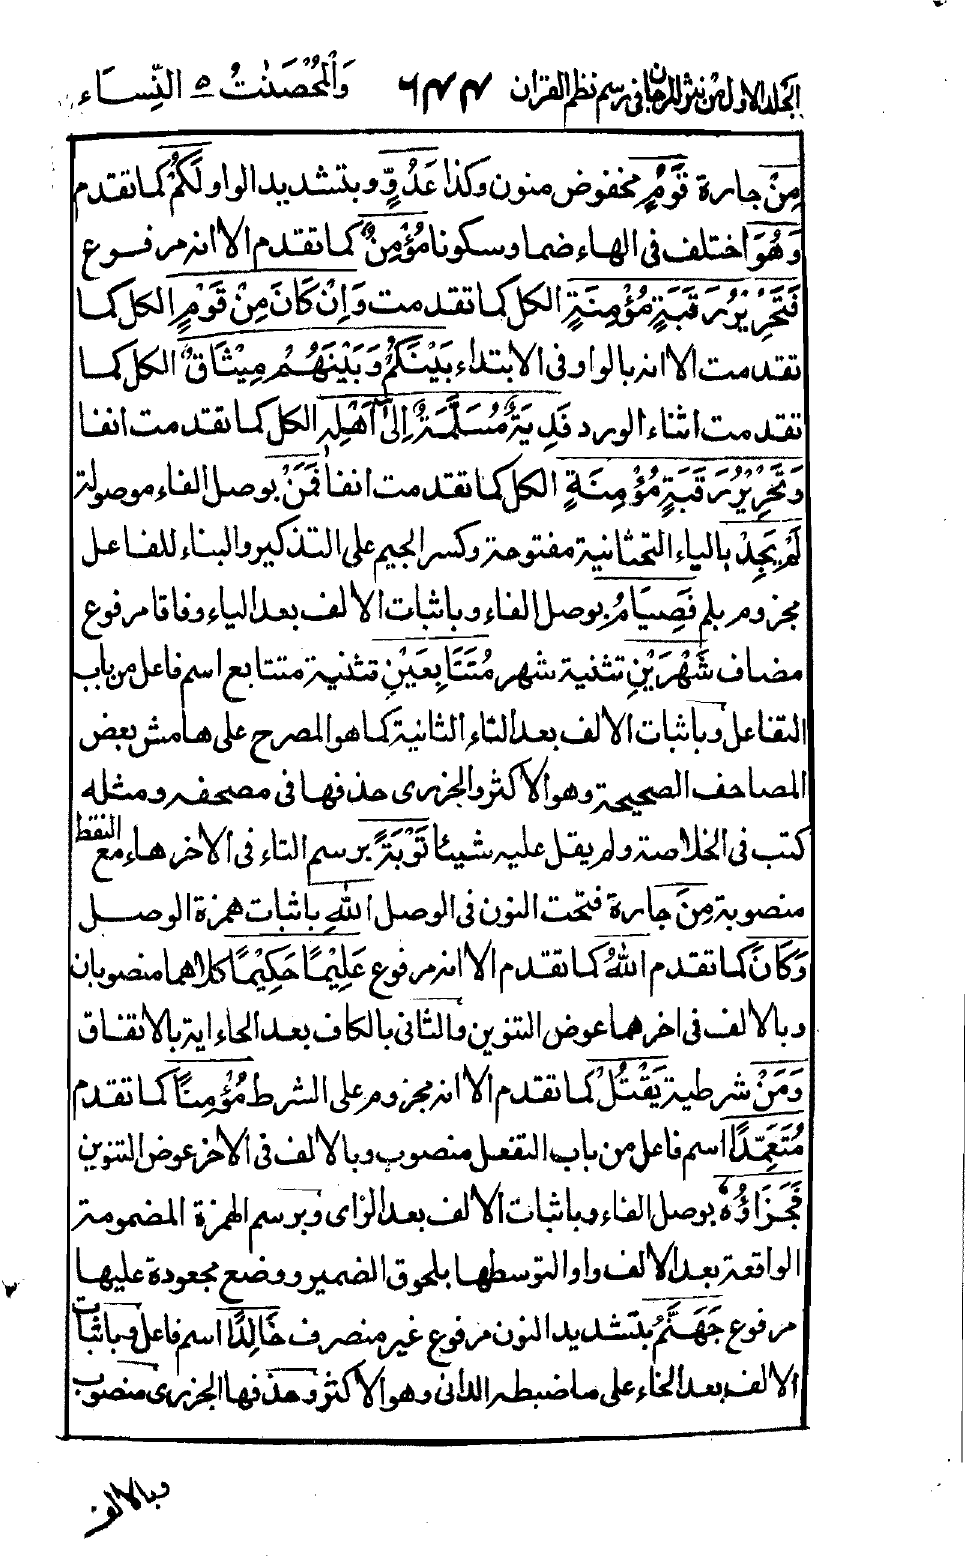 المجلد الاول من نثر المرجان في رسم نظم القران ٦٧٧ وَالْمُحْصَنٰتُ ٥ النِّسَاء
مِنْ جارة قَوْمٍ مخفوض منون وكذا عَدُوٍّ وبتشديد الواو لَكُمْ كما تقدم
وَهُوَ اختلف في الهاء ضما وسكونا مُؤْمِنٌ كما تقدم الا انه مرفوع
فَتَحْرِيْرُ رَقَبَةٍ مُؤْمِنَةٍ الكل كما تقدمت وَاِنْ كَانَ مِنْ قَوْمٍ الكل كما
تقدمت الا انه بالواو في الابتداء بَيْنَكُمْ وَبَيْنَهُمْ مِيْثَاقٌ الكل كما
تقدمت اثناء الورد فَدِيَةٌ مُسَلَّمَةٌ اِلٰٓى اَهْلِهٖ الكل كما تقدمت انفا
وَتَحْرِيْرُ رَقَبَةٍ مُؤْمِنَةٍ الكل كما تقدمت انفا فَمَنْ بوصل الفاء موصولة
لَمْ يَجِدْ بالياء التحتانية مفتوحة وكسر الجيم على التذكير والبناء للفاعل
مجزوم بلم فَصِيَامُ بوصل الفاء وباثبات الالف بعد الياء وفاقا مرفوع
مضاف شَهْرَيْنِ تثنية شهر مُتَتَابِعَيْنِ تثنية متتابع اسم فاعل من باب
التفاعل وباثبات الالف بعد التاء الثانية كما هو المصرح على هامش بعض
المصاحف الصحيحة وهو الاكثر والجزري حذفها في مصحفه ومثله
كتب في الخلاصة ولم يقل عليه شيئا تَوْبَةً برسم التاء في الاخر هاء مع النقط
منصوبة مِنَ جارة فتحت النون في الوصل اللهِ باثبات همزة الوصل
وَكَانَ كما تقدم اللهُ كما تقدم الا انه مرفوع عَلِيْمًا حَكِيْمًا كلاهما منصوبان
وبالالف في اخرهما عوض التنوين والثاني بالكاف بعد الحاء اية بالاتفاق
وَمَنْ شرطية يَقْتُلْ كما تقدم الا انه مجزوم على الشرط مُؤْمِنًا كما تقدم
مُتَعَمِّدًا اسم فاعل من باب التفعل منصوب وبالالف في الاخر عوض التنوين
فَجَزَاؤُهٗ بوصل الفاء وباثبات الالف بعد الزاي وبرسم الهمزة المضمومة
الواقعة بعد الالف واوا لتوسطها بلحوق الضمير ووضع مجعودة عليها
مرفوع جَهَنَّمُ بتشديد النون مرفوع غير منصرف خَالِدًا اسم فاعل وباثبات
الالف بعد الخاء على ما ضبطه الداني وهو الاكثر وحذفها الجزري منصوب
وبالالف